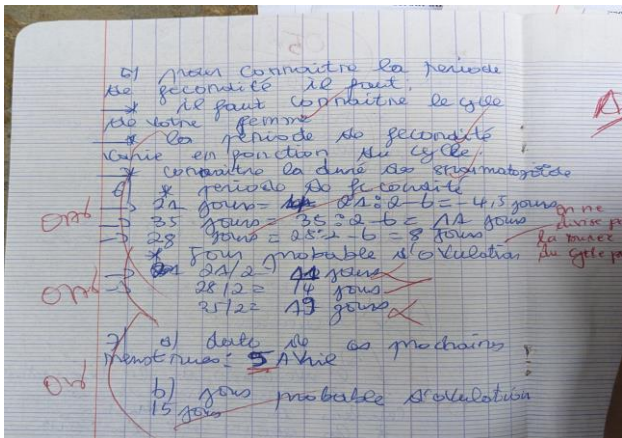 a) pour connaître la période
de fécondité il faut.
→ il faut connaître le cycle
de votre femme
→ la période de fécondité
varie en fonction du cycle.
→ connaître la durée des
6 * période de fécondité
→ 21 jours = 21 : 2 - 6 = - 4,5 jours
→ 35 jours = 35 : 2 - 6 = 11 jours
→ 28 jours = 28 : 2 - 6 = 8 jours
on ne
divise pas
la durée
du cycle p
* Jour probable d'ovulation
→ 21/2 = 11 jours
→ 28/2 = 14 jours
35/2 = 19 jours
7) a) date de ses prochaines
menstrues = 5 Avril
b) jours probable d'ovulation
15 jours